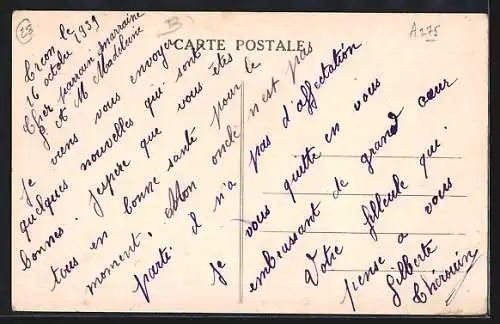 23
B
A275
CARTE POSTALE
Créon le
16 octobre 1939
Cher parrain marraine
et M Madeleine
je viens vous envoyer
quelques nouvelles qui sont
bonnes. J'espère que vous êtes
tous en bonne santé pour le
moment. Mon oncle n'est pas
parti. il n'a pas d'affectation
je vous quitte en vous
embrassant de grand cœur
Votre filleule qui
pense a vous
Gilberte